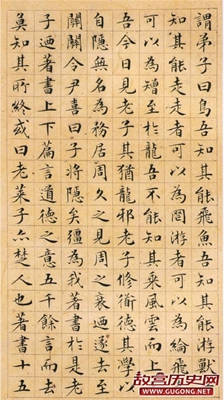 謂弟子曰鳥吾知其能飛魚吾知其能游獸
知其能走走者可以為罔游者可以為綸飛
可以為矰至於龍吾不能知其乘風雲而上
吾今日見老子其猶龍邪老子修道德其學以
自隱無名為務居周久之見周之衰迺遂去至
關關令尹喜曰子將隱矣彊為我著書於是老
子迺著書上下篇言道德之意五千餘言而去
莫知其所終或曰老萊子亦楚人也著書十五
故宫历史网
WWW.GUGONG.NET